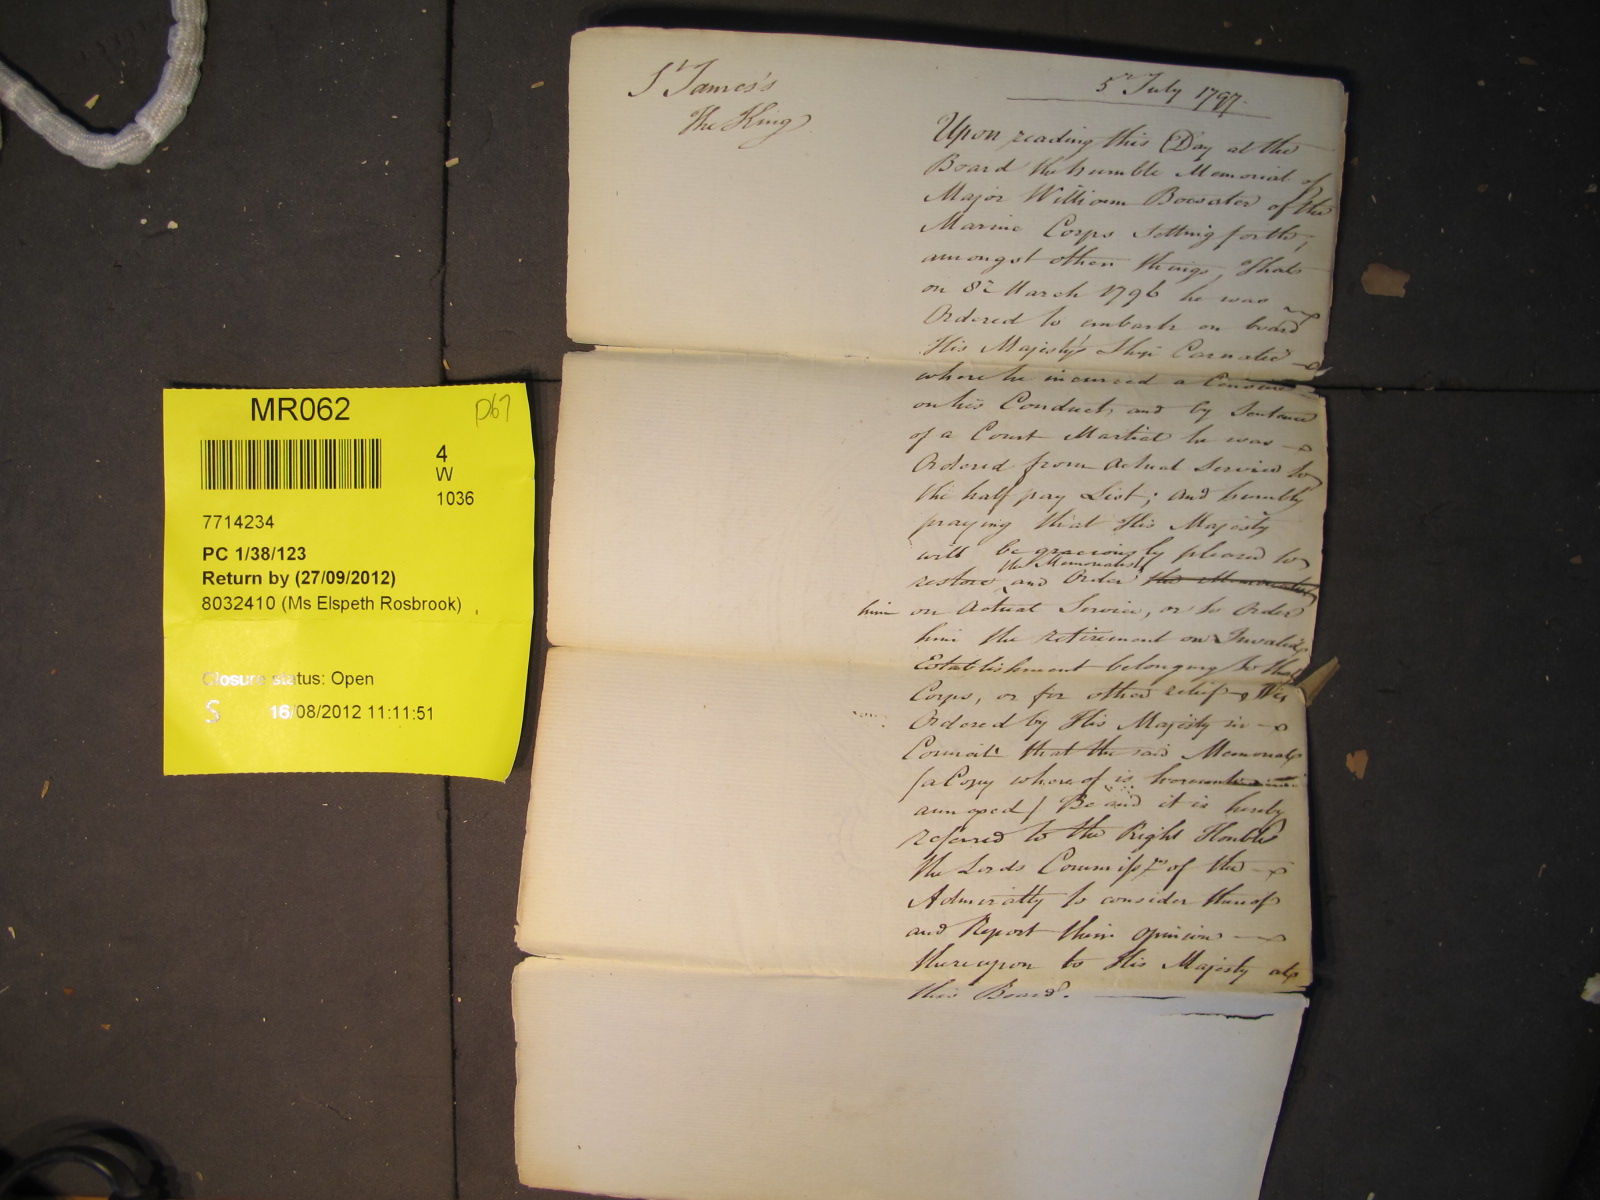 MR062
p67
4
W
1036
7714234
PC 1/38/123
Return by (27/09/2012)
8032410 (Ms Elspeth Rosbrook)
Closure status: Open
S 16/08/2012 11:11:51
St James's
The King
5th July 1797.
Upon reading this Day at the
Board the humble Memorial of
Major William Boosater of the
Marine Corps setting forth,
amongst other things, That
on 8th March 1796 he was
Ordered to embark on board
His Majesty's Ship Carnatic
where he incurred a Censure
on his Conduct, and by Sentence
of a Court Martial he was
Ordered from actual Service to
the half pay List; and humbly
praying that His Majesty
will be graciously pleased to
the Memorialist
restore and Order the Memorialist
him on Actual Service, or to Order
him the retirement on Invalid
Establishment belonging to the
Corps, or for other relief It is
Ordered by His Majesty in
Council that the said Memorial
(a Copy whereof is hereunto
annexed) Be and it is hereby
referred to the Right Honble
the Lords Commissrs of the
Admiralty to consider thereof
and Report their opinion
thereupon to His Majesty at
this Board.